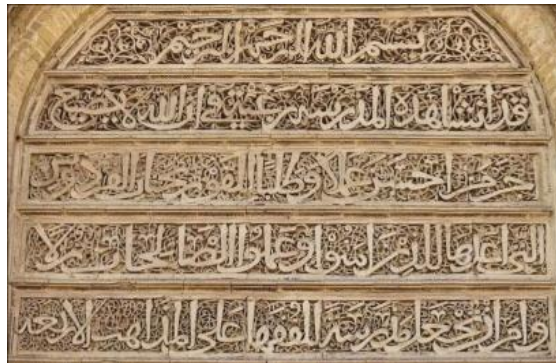 بسم الله الرحمن الرحيم
قد انشا هذه المدرسة رغبة في ان الله لا يضيع
اجر من احسن عملا وطلبا للفوز بجنات الفردوس
التي اعدها للذين امنوا وعملوا الصالحات نزلا
وامر ان تجعل مدرسة للفقها على المذاهب الاربعة